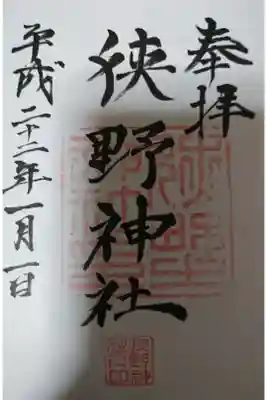 奉拝
狭野神社
平成二十二年一月一日